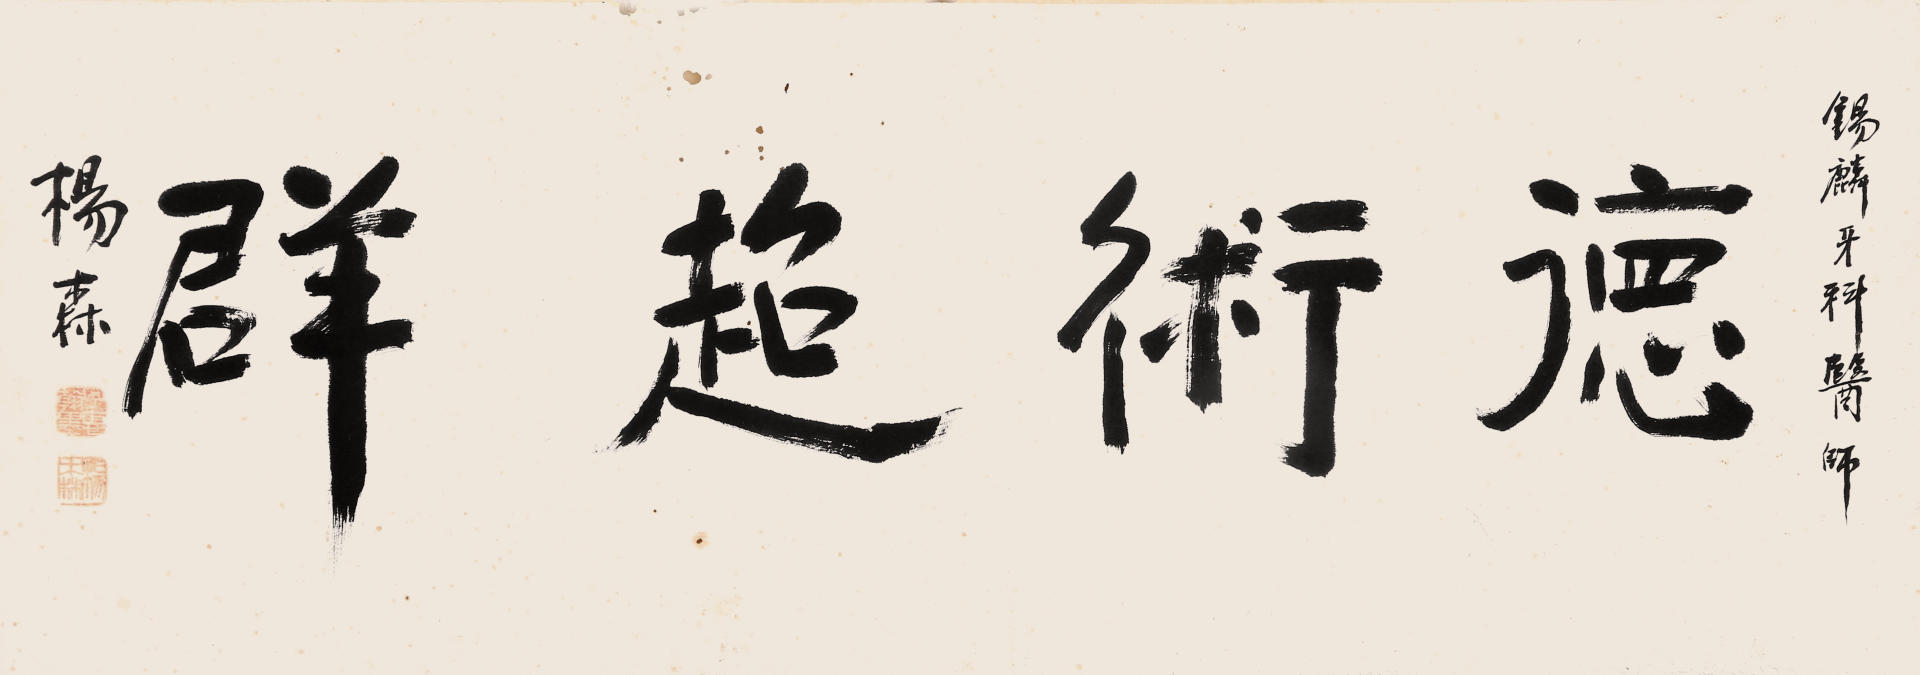 錫麟牙科醫師
德術超群
楊森